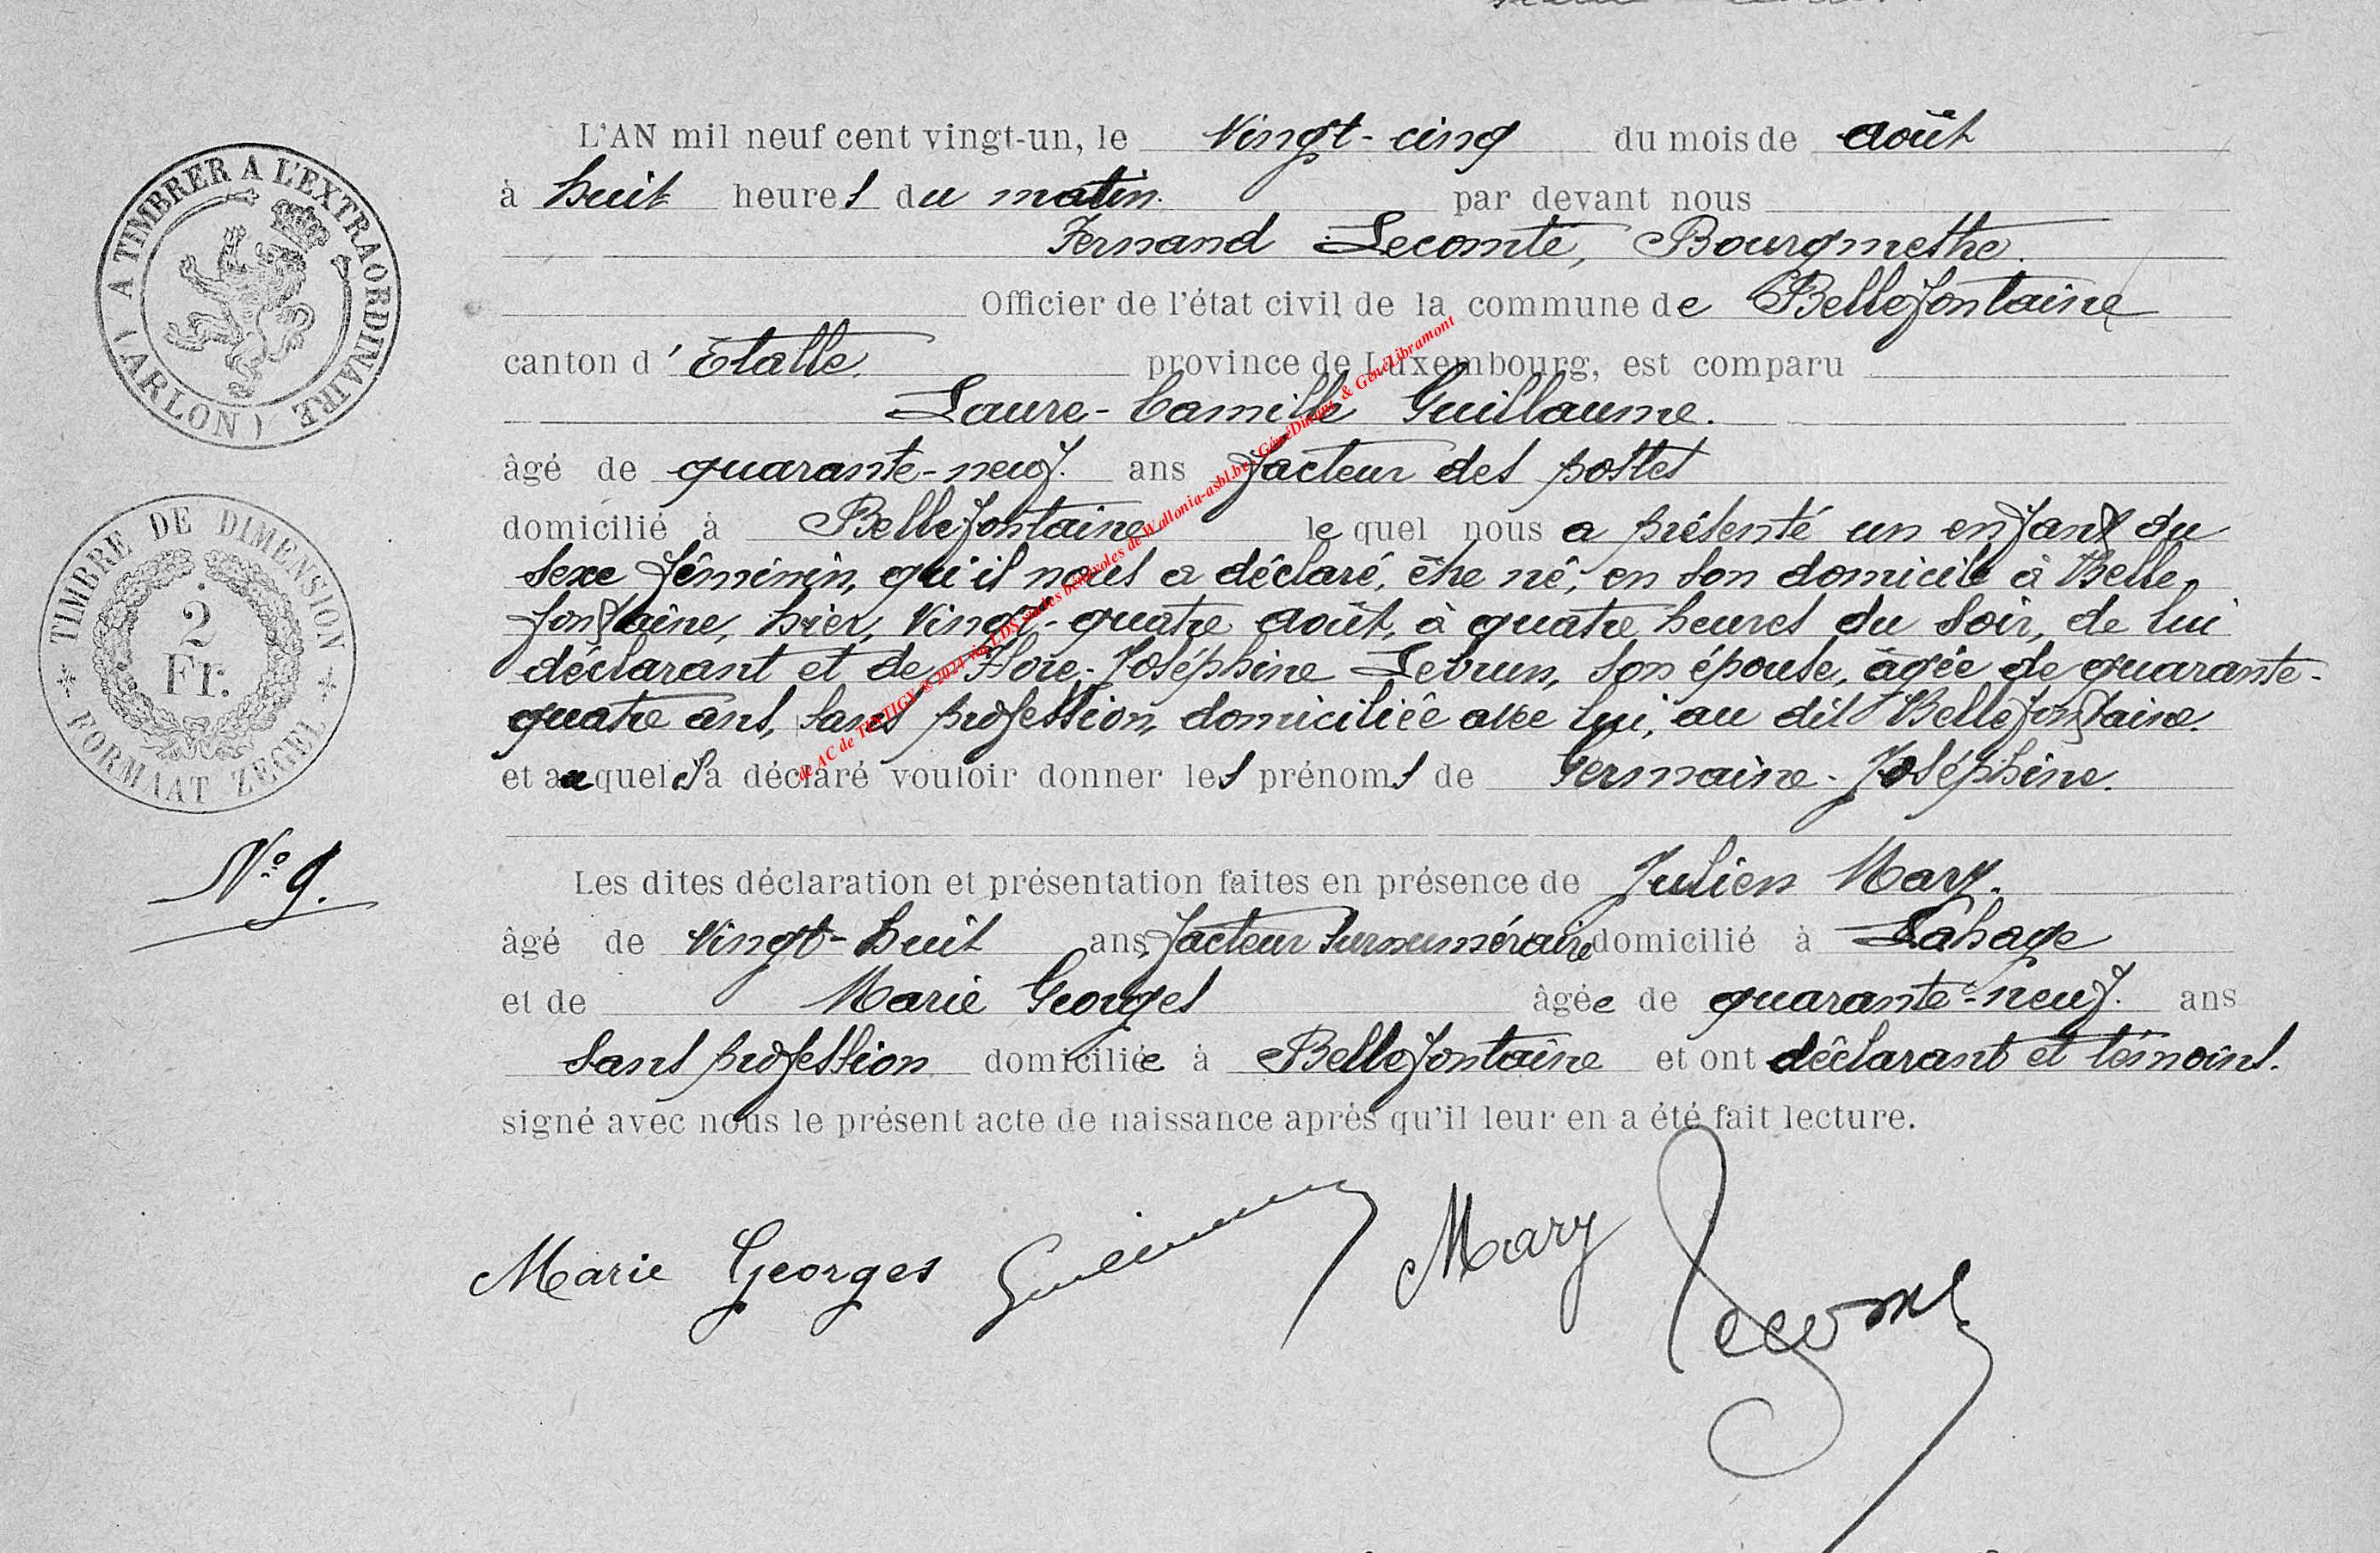 L'AN mil neuf cent vingt-un, le Vingt-cinq du mois de août
à huit heures du matin. par devant nous
Fernand Lecomte, Bourgmestre.
Officier de l'état civil de la commune de Bellefontaine
canton d'Etalle. province de Luxembourg, est comparu
Laure-Camille Guillaume.
âgé de quarante-neuf. ans facteur des postes
domicilié à Bellefontaine lequel nous a présenté un enfant du
sexe féminin, qu'il nous a déclaré, être né, en son domicile à Belle-
fontaine, hier, Vingt-quatre août, à quatre heures du soir, de lui
déclarant et de Flore-Joséphine Lebrun, son épouse, âgée de quarante-
quatre ans, sans profession, domiciliée avec lui, au dit Bellefontaine.
et auquel il a déclaré vouloir donner les prénoms de Germaine-Joséphine.
Les dites déclaration et présentation faites en présence de Julien Mary.
âgé de Vingt-huit ans, facteur surnuméraire domicilié à Lahage
et de Marie Georges âgée de quarante-neuf. ans
sans profession domiciliée à Bellefontaine et ont déclarant et témoins.
signé avec nous le présent acte de naissance après qu'il leur en a été fait lecture.
Marie Georges Guillaume Mary Lecomte
A TIMBRER A L'EXTRAORDINAIRE
(ARLON)
TIMBRE DE DIMENSION
2
Fr.
FORMAAT ZEGEL
N° 9.
de AC de TINTIGY © 2024 via LDS via les bénévoles de Wallonia-asbl.be, GénéDinant & GénéLibramont